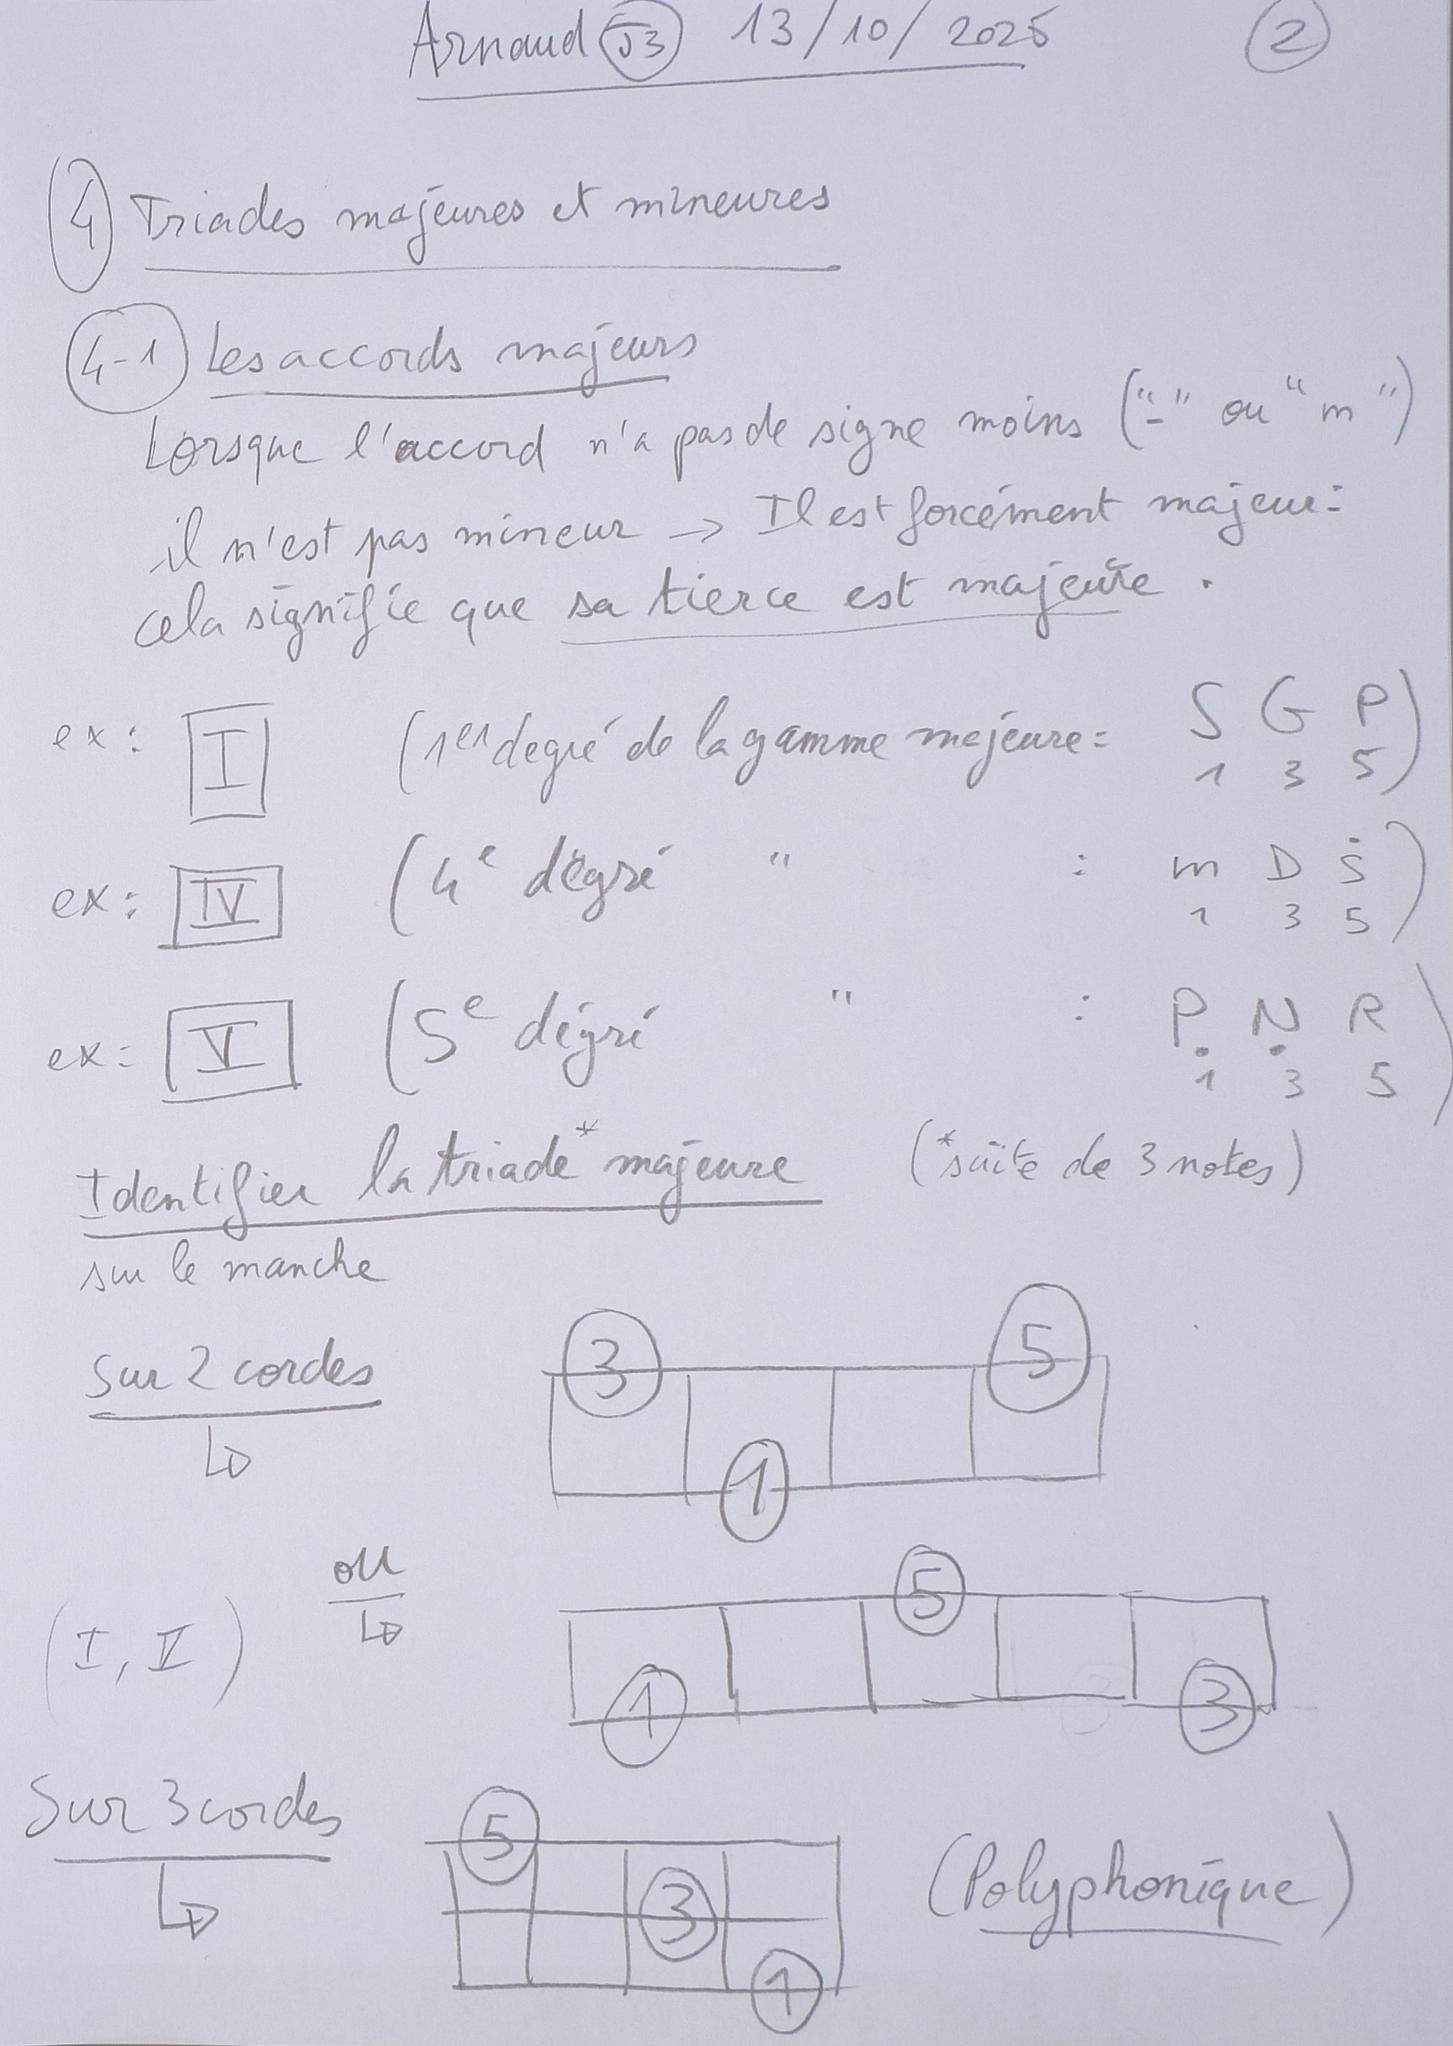 Arnaud J3 13/10/2025 2
4 Triades majeures et mineures
4-1 Les accords majeurs
Lorsque l'accord n'a pas de signe moins ("-" ou "m")
il n'est pas mineur → Il est forcément majeur:
cela signifie que sa tierce est majeure.
ex: I (1er degré de la gamme majeure = S G P)
1 3 5
ex: IV (4e dégré " : m D Ṡ)
1 3 5
ex: V (5e dégré " : P̣ Ṇ R)
1 3 5
Identifier la triade* majeure (*suite de 3 notes)
sur le manche
Sur 2 cordes
3 5
1
ou
(I, V)
5
1 3
Sur 3 cordes
5
3 (Polyphonique)
1